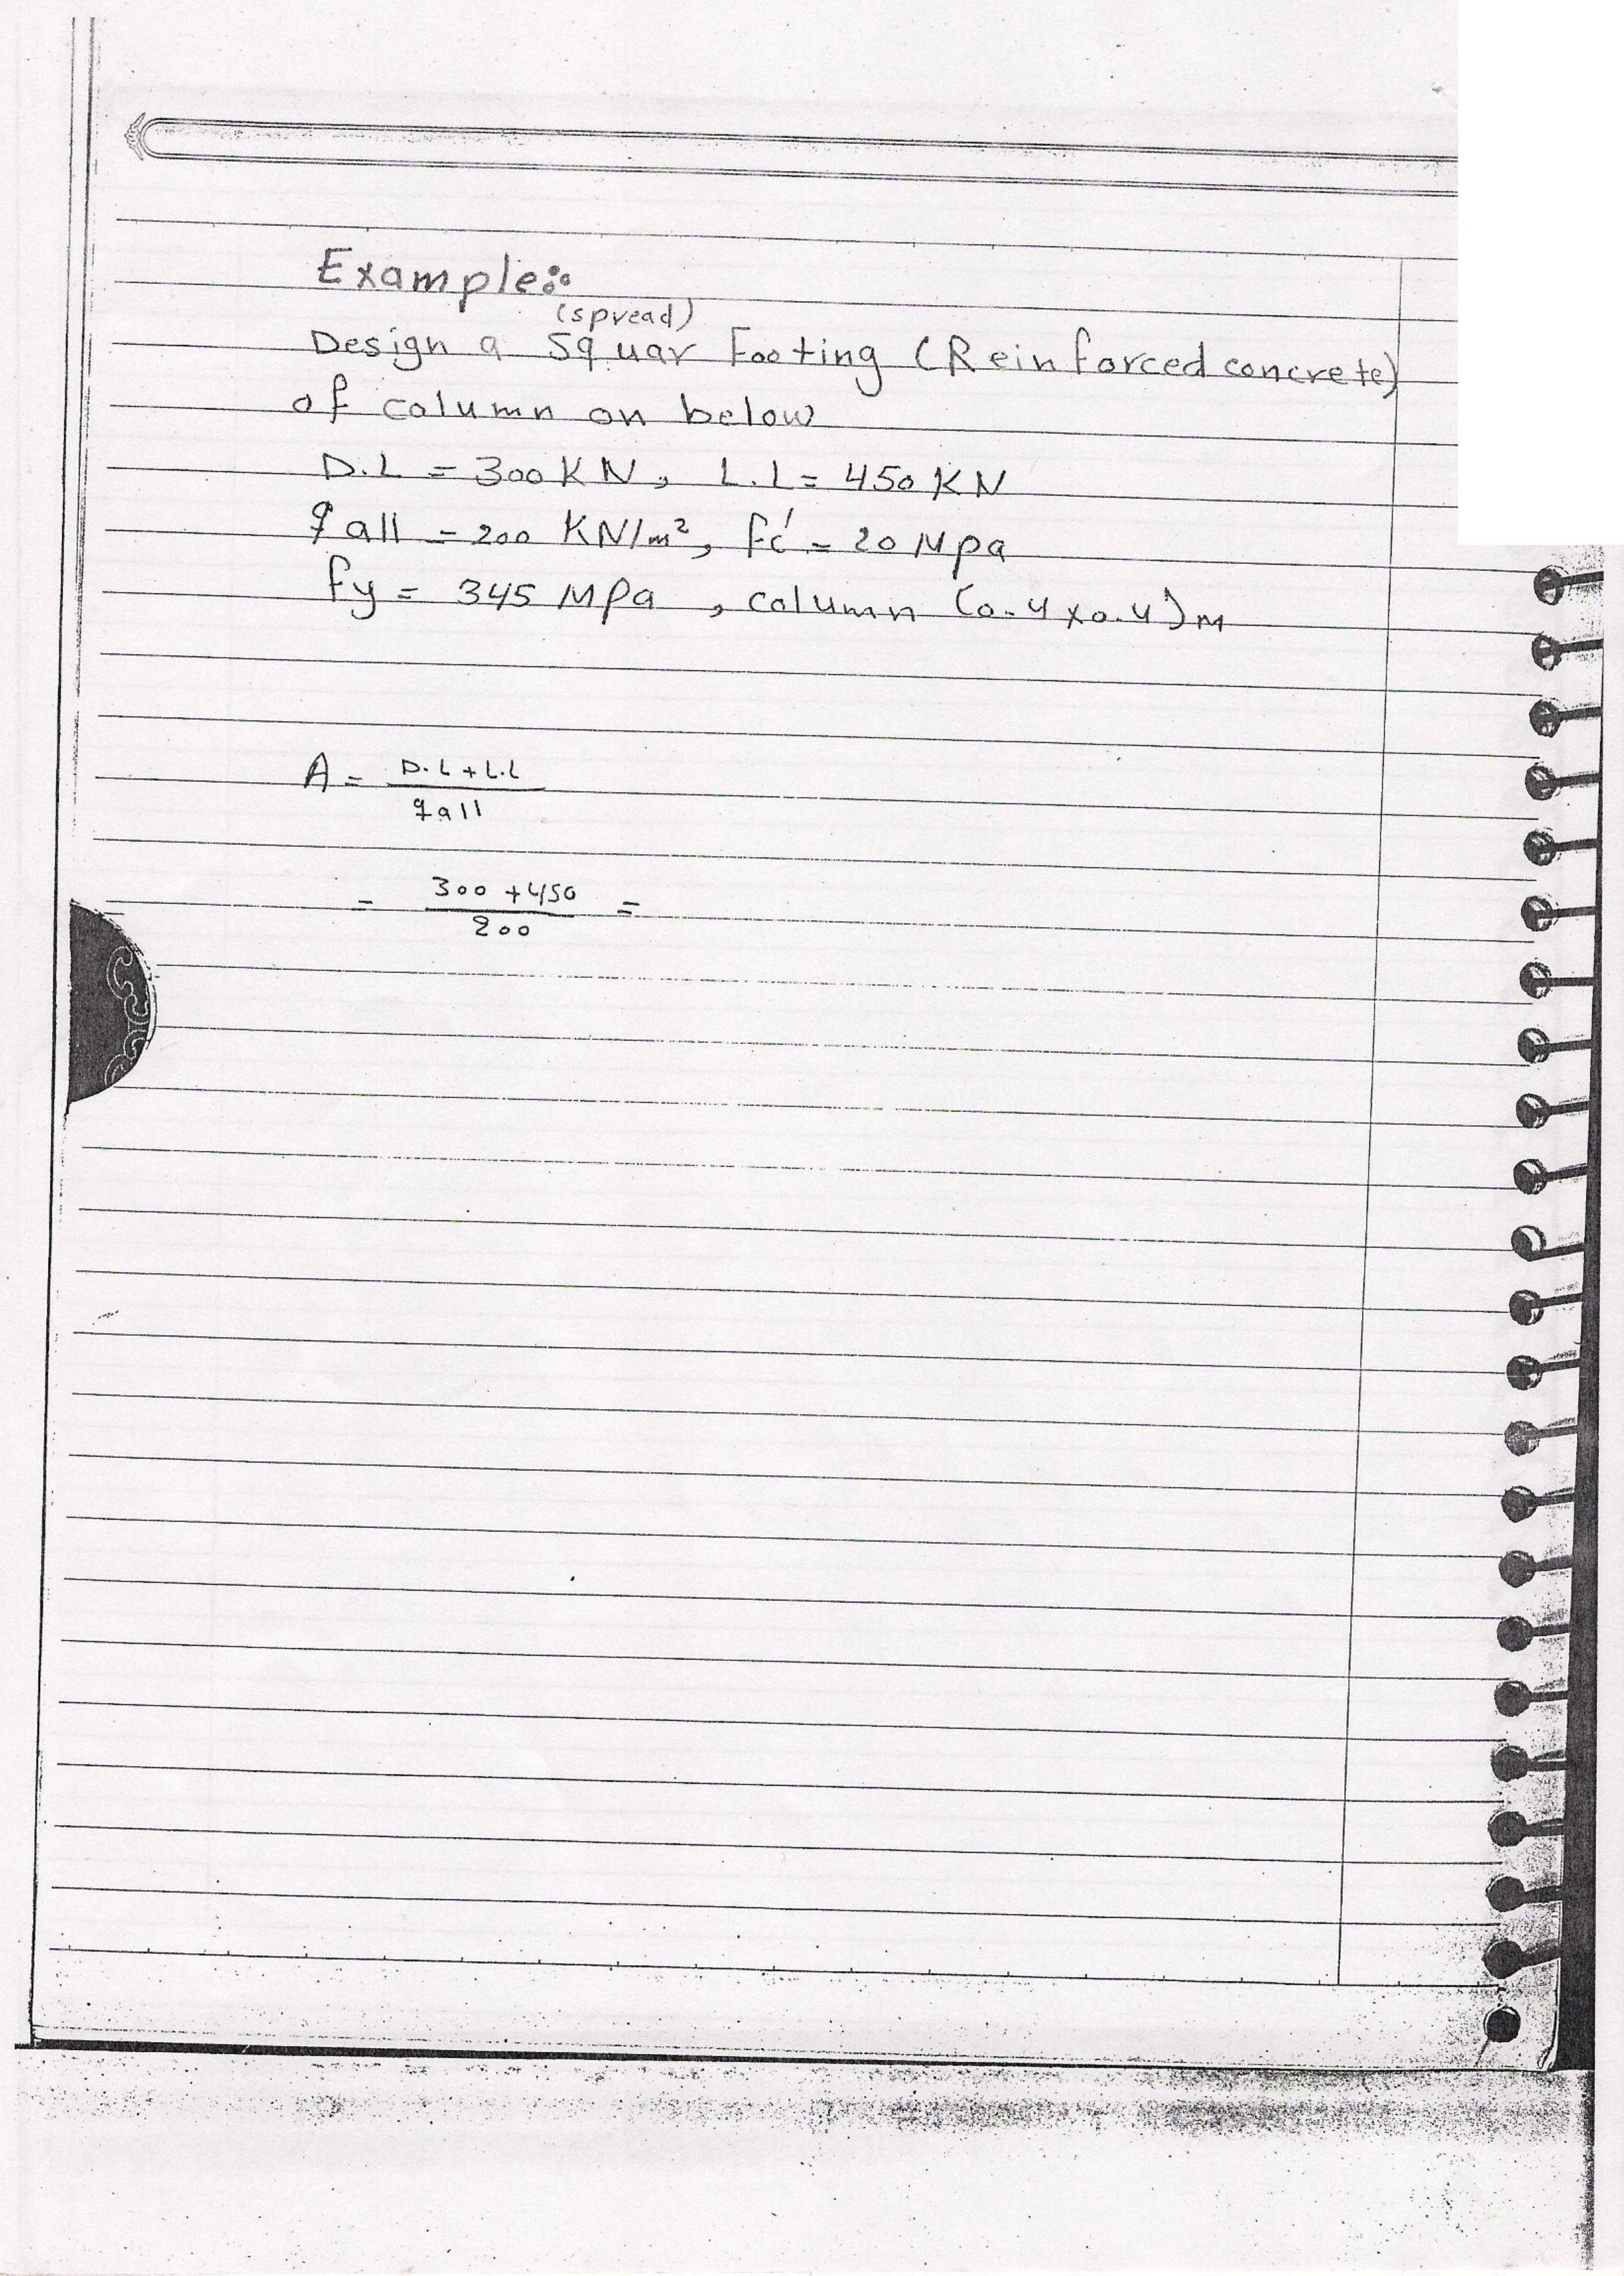 Example:
(spread)
Design a Squar Footing (Reinforced concrete)
of column on below
D.L = 300 KN, L.L = 450 KN
qall = 200 KN/m², fc' = 20 Mpa
fy = 345 Mpa, column (0.4 x 0.4) m
A = D.L + L.L
qall
= 300 + 450 =
200